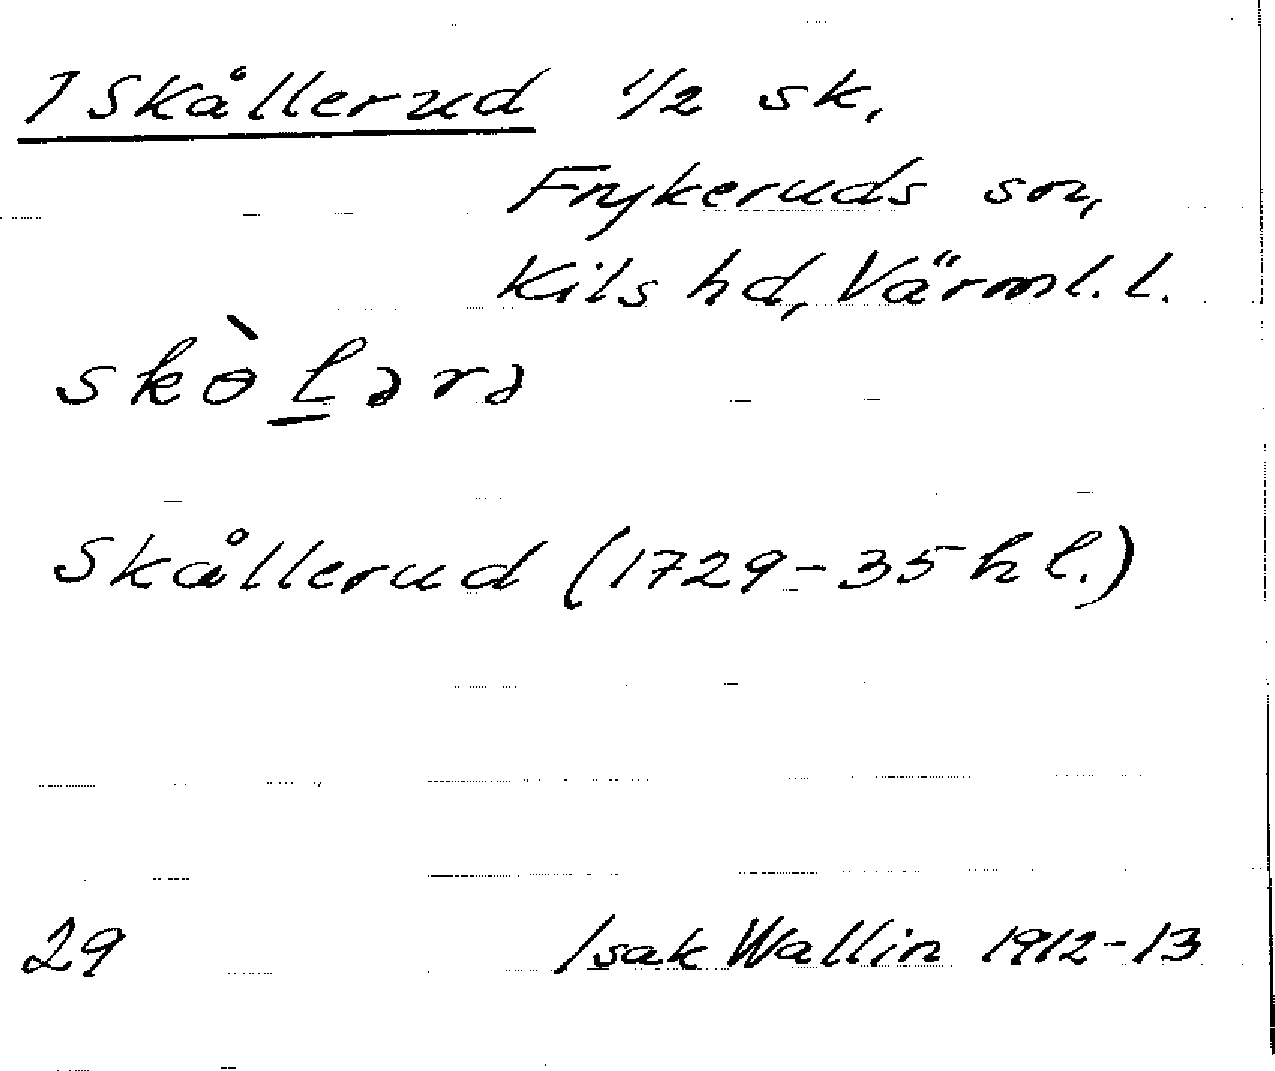 1 Skållerud 1/2 sk,
Frykeruds sn,
Kils hd, Värml. l.
skɵ̀l̲ərə
Skållerud (1729-35 hl.)
29 Isak Wallin 1912-13